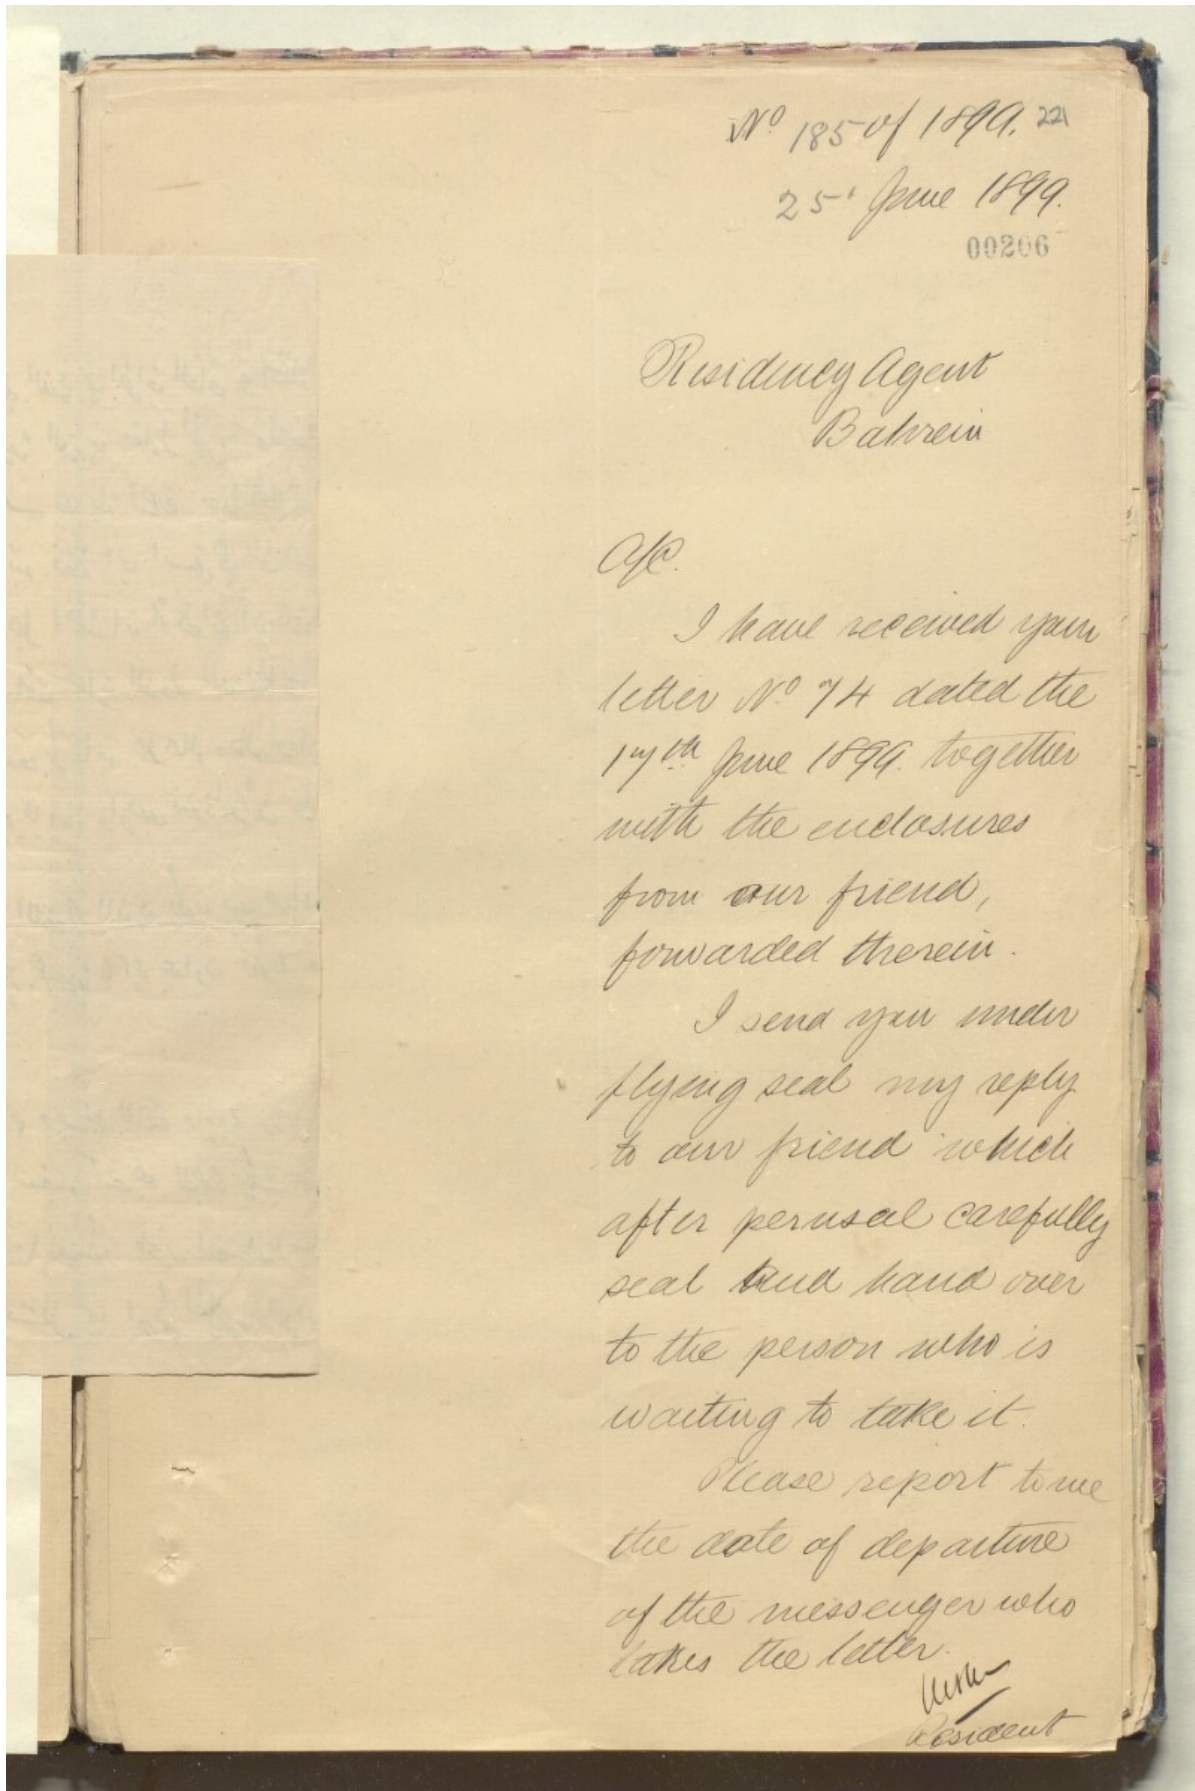 Nº 185 of 1899. 221
25 June 1899.
00206
Residency Agent
Bahrein
A/C.
I have received your
letter Nº 74 dated the
17th June 1899. together
with the enclosures
from our friend,
forwarded therein.
I send you under
flying seal my reply
to our friend which
after perusal carefully
seal and hand over
to the person who is
waiting to take it.
Please report to me
the date of departure
of the messenger who
takes the letter.
Resident